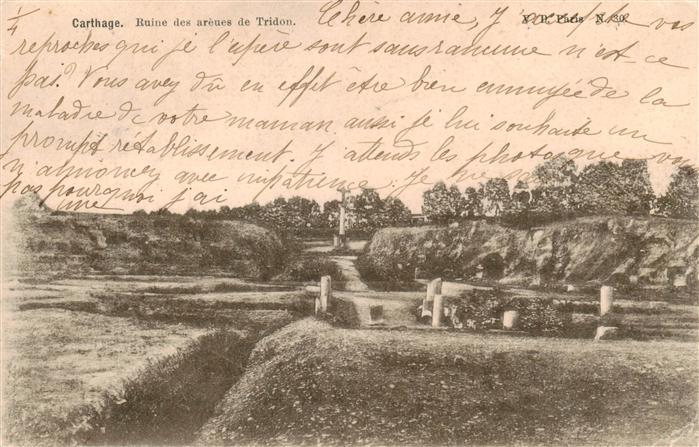 1/4
Carthage. Ruine des arènes de Tridon.
V. P. Paris N. 30.
Chère amie, J'accepte vos
reproches qui je l'espère sont sans rancune n'est ce
pas? Vous avez dû en effet être bien ennuyée de la
maladie de votre maman aussi je lui souhaite un
prompt rétablissement. J'attends les photos que vous
m'annoncez avec impatience. Je ne sais
pas pourquoi j'ai